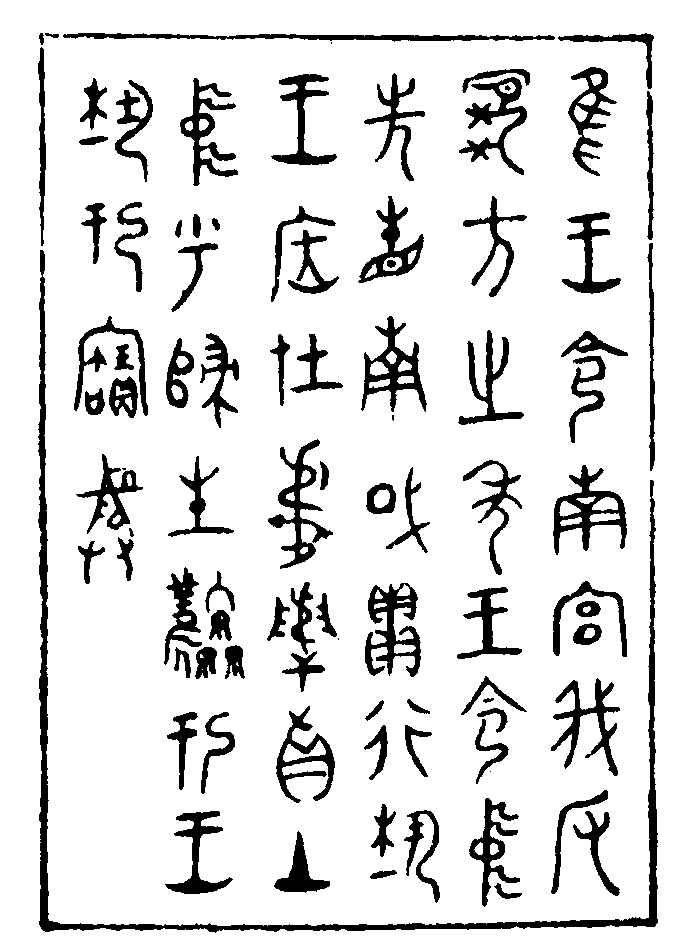 隹王令南宮伐反
虎方之年王令中
先省南或貫行埶
王应在真山
中乎歸生鳳于王
埶于寶彝